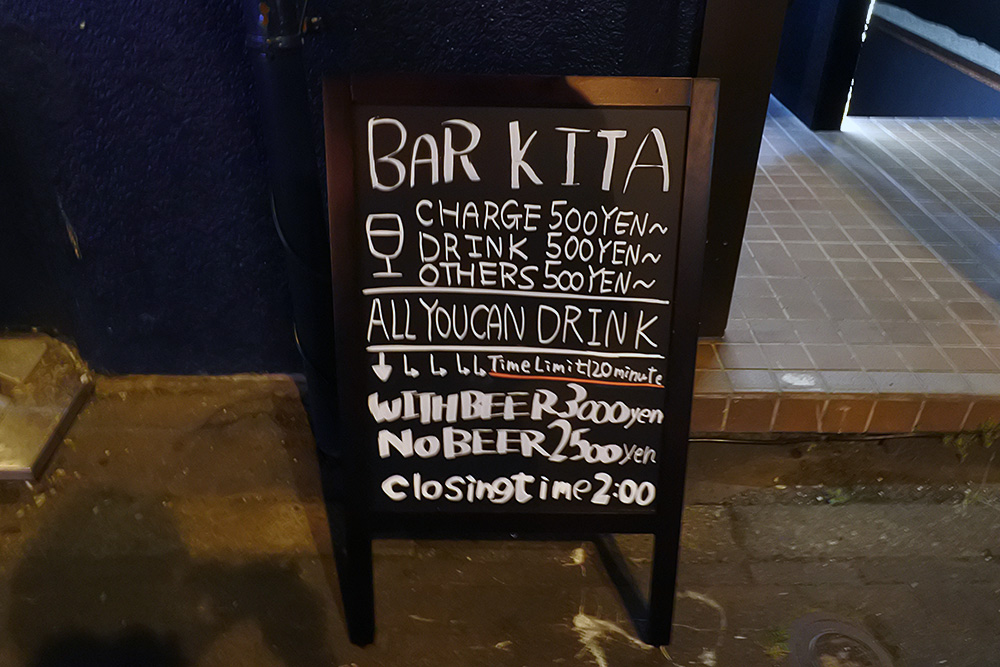 BAR KITA
CHARGE 500YEN~
DRINK 500YEN~
OTHERS 500YEN~
ALL YOU CAN DRINK
Time Limit 120 minute
WITH BEER 3000yen
NO BEER 2500yen
closing time 2:00